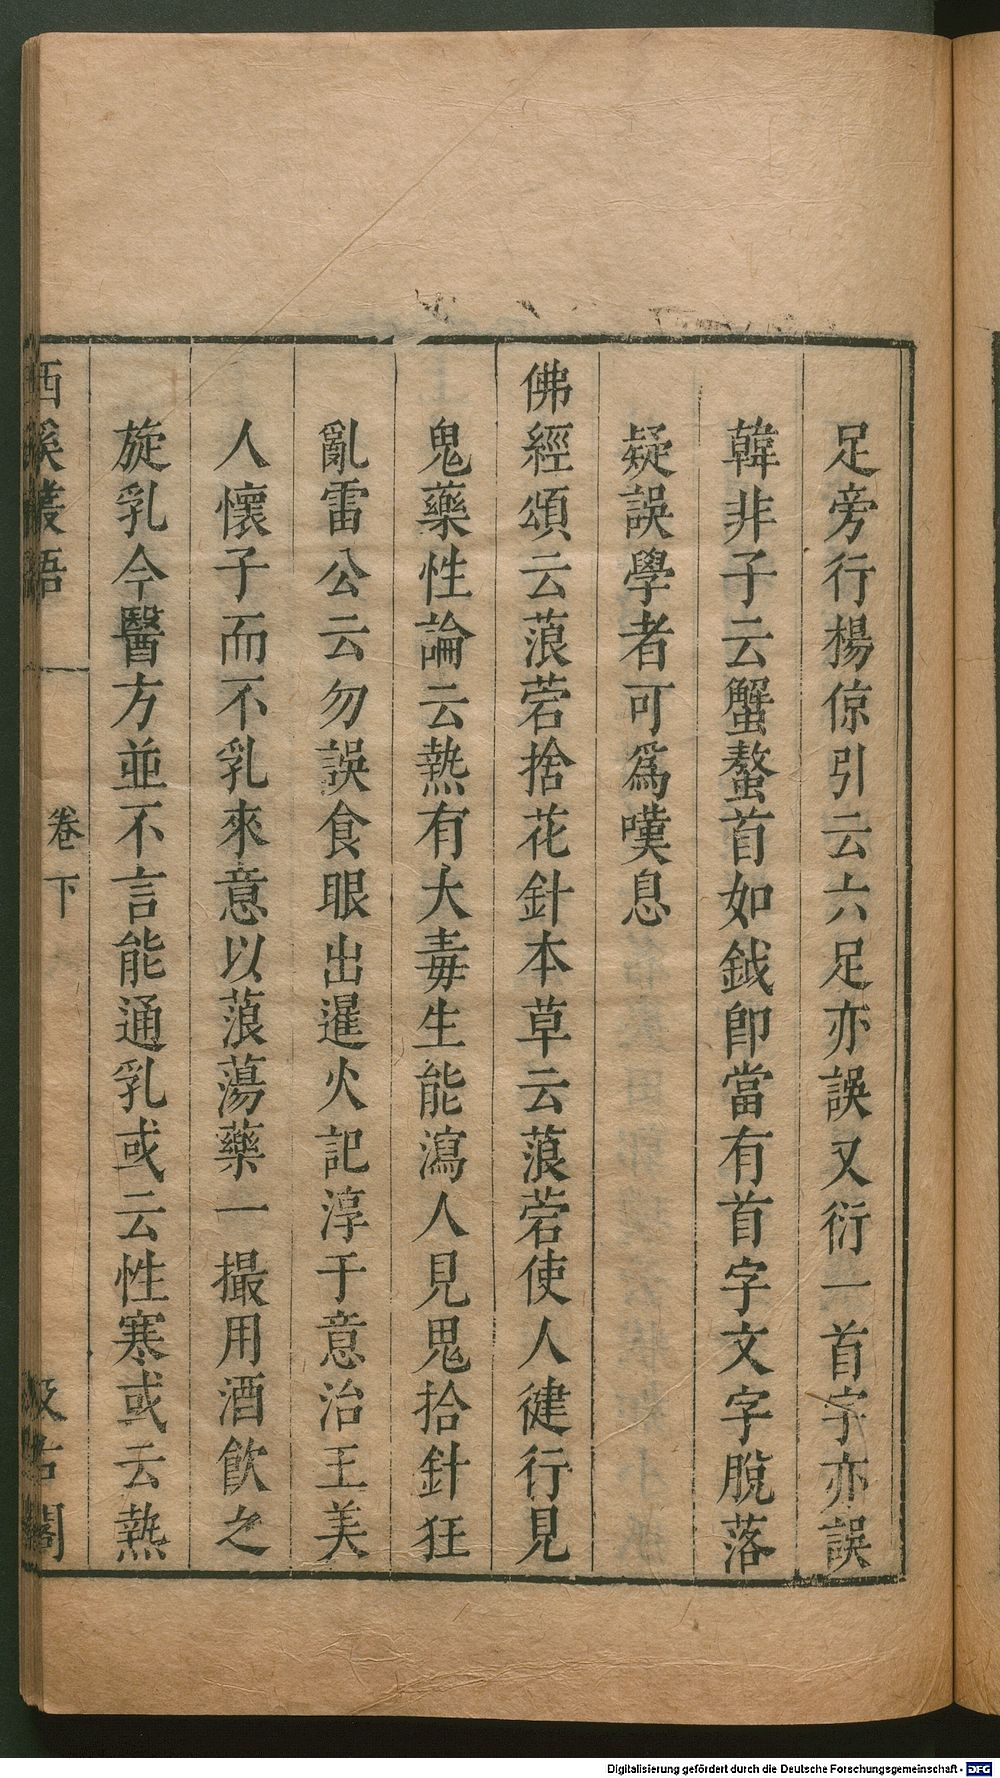 足旁行楊倞引云六足亦誤又衍一首字亦誤
韓非子云蟹螯首如鉞卽當有首字文字脫落
疑誤學者可爲嘆息
佛經頌云莨菪拾花針本草云蒗菪使人健行見
鬼藥性論云熱有大毒生能瀉人見鬼拾針狂
亂雷公云勿誤食眼出暹火記淳于意治王美
人懷子而不乳來意以蒗蕩藥一撮用酒飲之
旋乳今醫方並不言能通乳或云性寒或云熱
西溪叢語
卷下
汲古閣
Digitalisierung gefördert durch die Deutsche Forschungsgemeinschaft - DFG